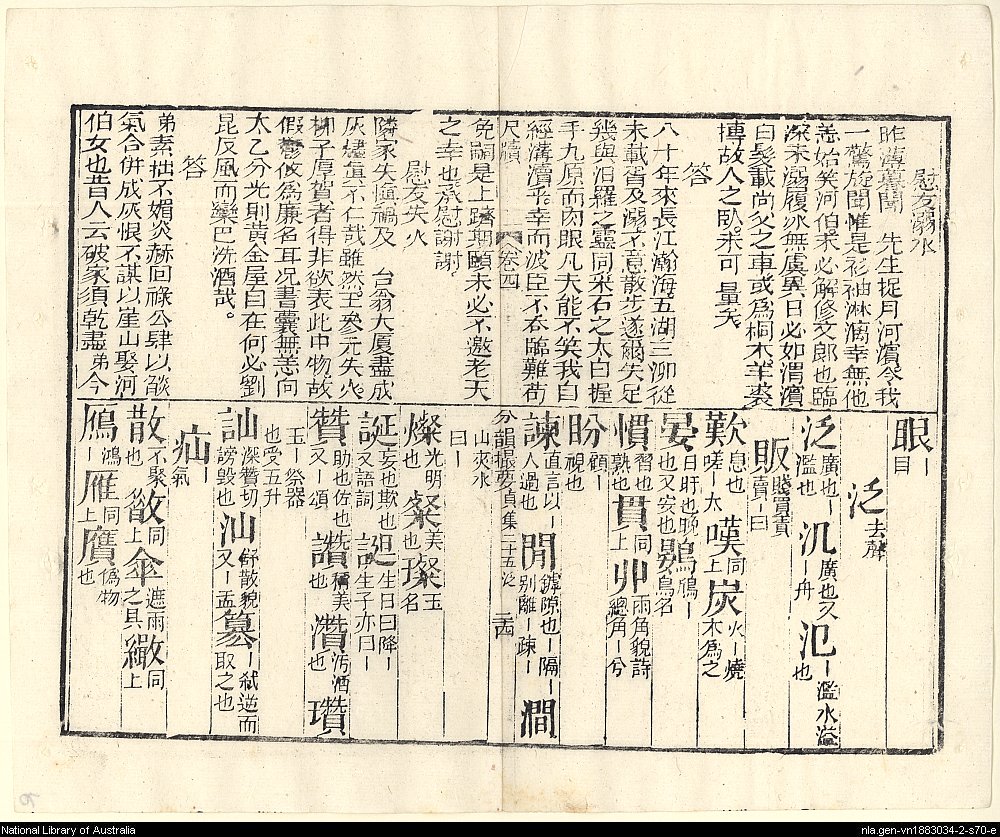 慰友溺水
昨薄暮聞　先生捉月河濱令我
一驚旋聞惟是衫袖淋漓幸無他
恙始笑河伯未必解修文郎也臨
深未溺履冰無虞異日必如渭濱
白髮載尚父之車或為桐木羊裘
摶故人之臥未可量矣
答
八十年來長江瀚海五湖三泖從
未載胥及溺不意散步遂爾失足
幾與汨羅之靈同采石之太白握
手九原而肉眼凡夫能不笑我自
經溝瀆乎幸而波臣不吞臨難苟
尺牘　卷四
免嗣是上躋期頤未必不邀老天
之幸也承慰謝謝
慰友失火
隣家失慎禍及　台翁大廈盡成
灰燼眞不仁哉雖然王參元失火
柳子厚賀者得非欲表此中物故
假鬱攸為廉名耳况書囊無恙向
太乙分光則黃金屋自在何必劉
昆反風而欒巴洗酒哉
答
弟素拙不媚炎赫回祿公肆以燄
氣合併成灰恨不謀以崖山娶河
伯女也昔人云破家須乾盡弟今
眼｜目
泛去聲
泛廣也｜濫也 汎廣也又｜舟 氾｜濫水溢也
販賤買貴賣｜曰
歎息也嗟｜太 嘆同上 炭火｜燒木為之
晏日旰也晚也又安也 鷃鳸｜鳥名
慣習也熟也 貫同上 丱兩角貌詩總角｜兮
盼顧｜視也
諫直言以｜人過也 間罅隙也｜隔｜别離｜疎｜ 澗
分韻撮要貞集二十五泛　二十四
山夾水曰｜
燦光明也 粲美也 璨玉名
誕妄也欺也又語詞 𧧼生日曰降｜生子亦曰｜
贊助也佐也又｜頌 讚稱美也 灒汚洒也 瓚
玉｜祭器也受五升
訕深贊切謗毀也 汕舒散貌又｜盂 篡｜弑逆而取之也
疝｜氣
散不聚也 㪚同上 傘遮雨之具 繖同上
鴈鴻｜ 雁同上 贋偽物也
National Library of Australia
nla.gen-vn1883034-2-s70-e